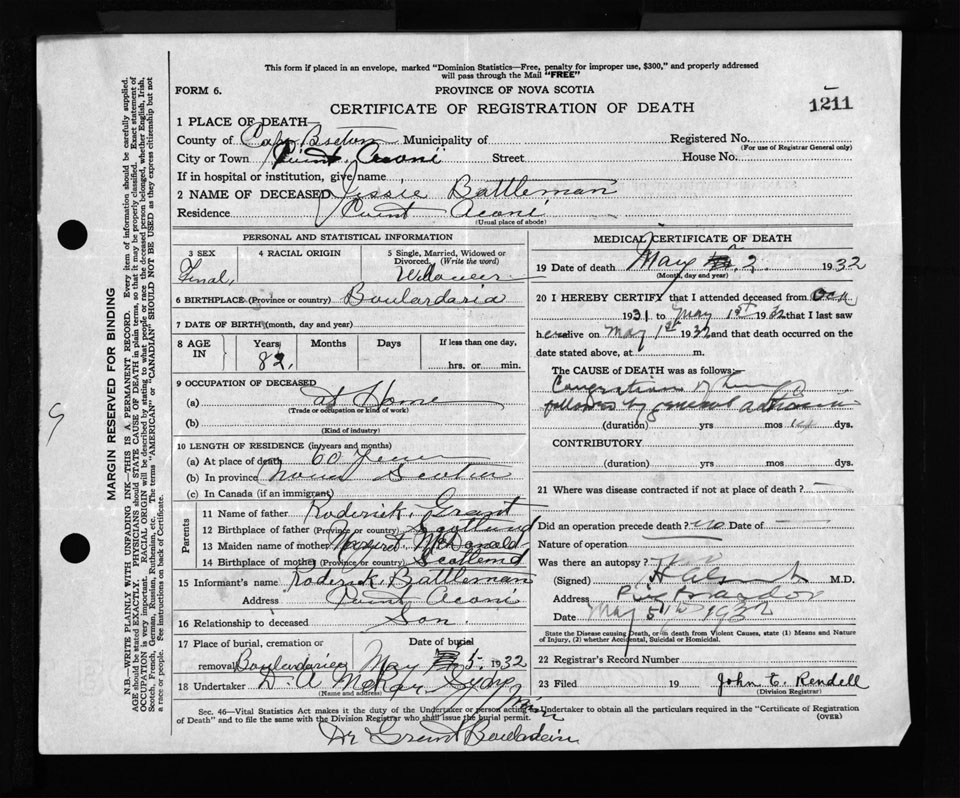 This form if placed in an envelope, marked "Dominion Statistics—Free, penalty for improper use, $300," and properly addressed
will pass through the Mail "FREE"
FORM 6.
PROVINCE OF NOVA SCOTIA
CERTIFICATE OF REGISTRATION OF DEATH
1211
1 PLACE OF DEATH
County of Cape Breton Municipality of Registered No.
(For use of Registrar General only)
City or Town Point Aconi Street House No.
If in hospital or institution, give name
2 NAME OF DECEASED Jessie Battleman
Residence Point Aconi
(Usual place of abode)
PERSONAL AND STATISTICAL INFORMATION
3 SEX 4 RACIAL ORIGIN 5 Single, Married, Widowed or
Divorced, (Write the word)
Femal,
6 BIRTHPLACE (Province or country) Boulardaria
7 DATE OF BIRTH (month, day and year)
8 AGE IN Years Months Days If less than one day,
82, hrs. or min.
9 OCCUPATION OF DECEASED
(a) at Home
(Trade or occupation or kind of work)
(b)
(Kind of industry)
10 LENGTH OF RESIDENCE (in years and months)
(a) At place of death 60 Years
(b) In province Nova Scotia
(c) In Canada (if an immigrant)
Parents
11 Name of father Roderick. Grant
12 Birthplace of father (Province or country) Scotland
13 Maiden name of mother Margret. McDonald
14 Birthplace of mother (Province or country) Scotland
15 Informant's name Roderick. Battleman
Address Point Aconi
16 Relationship to deceased Son.
17 Place of burial, cremation or Date of burial
removal Boulardarie May 5. 1932
18 Undertaker D. A McRae Sydney Mines
(Name and address)
MEDICAL CERTIFICATE OF DEATH
19 Date of death May 2. 1932
(Month, day and year)
20 I HEREBY CERTIFY that I attended deceased from
1931 to May 1st 1932 that I last saw
her alive on May 1st 1932 and that death occurred on the
date stated above, at m.
The CAUSE OF DEATH was as follows:—
followed by general
(duration) yrs mos dys.
CONTRIBUTORY
(duration) yrs mos. dys.
21 Where was disease contracted if not at place of death?
Did an operation precede death? no Date of
Nature of operation
Was there an autopsy? no
(Signed) M.D.
Address
Date May 5th 1932
State the Disease causing Death, or in death from Violent Causes, state (1) Means and Nature
of Injury, (2) whether Accidental, Suicidal or Homicidal.
22 Registrar's Record Number
23 Filed 19 John C. Rendell
(Division Registrar)
Sec. 46—Vital Statistics Act makes it the duty of the Undertaker or person acting as Undertaker to obtain all the particulars required in the "Certificate of Registration
of Death" and to file the same with the Division Registrar who shall issue the burial permit.
(OVER)
Dr Grant
MARGIN RESERVED FOR BINDING
N.B.—WRITE PLAINLY WITH UNFADING INK—THIS IS A PERMANENT RECORD. Every item of information should be carefully supplied.
AGE should be stated EXACTLY. PHYSICIANS should STATE CAUSE OF DEATH in plain terms, so that it may be properly classified. Exact statement of
OCCUPATION is very important. RACIAL ORIGIN will be described by stating to what people or race the deceased person belonged, whether English, Irish,
Scotch, French, German, Russian, Ruthenian, etc. The terms "AMERICAN" or "CANADIAN" SHOULD NOT BE USED as they express citizenship but not
a race or people. See instructions on back of Certificate.
9